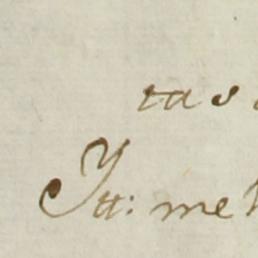 tas
Itt: me